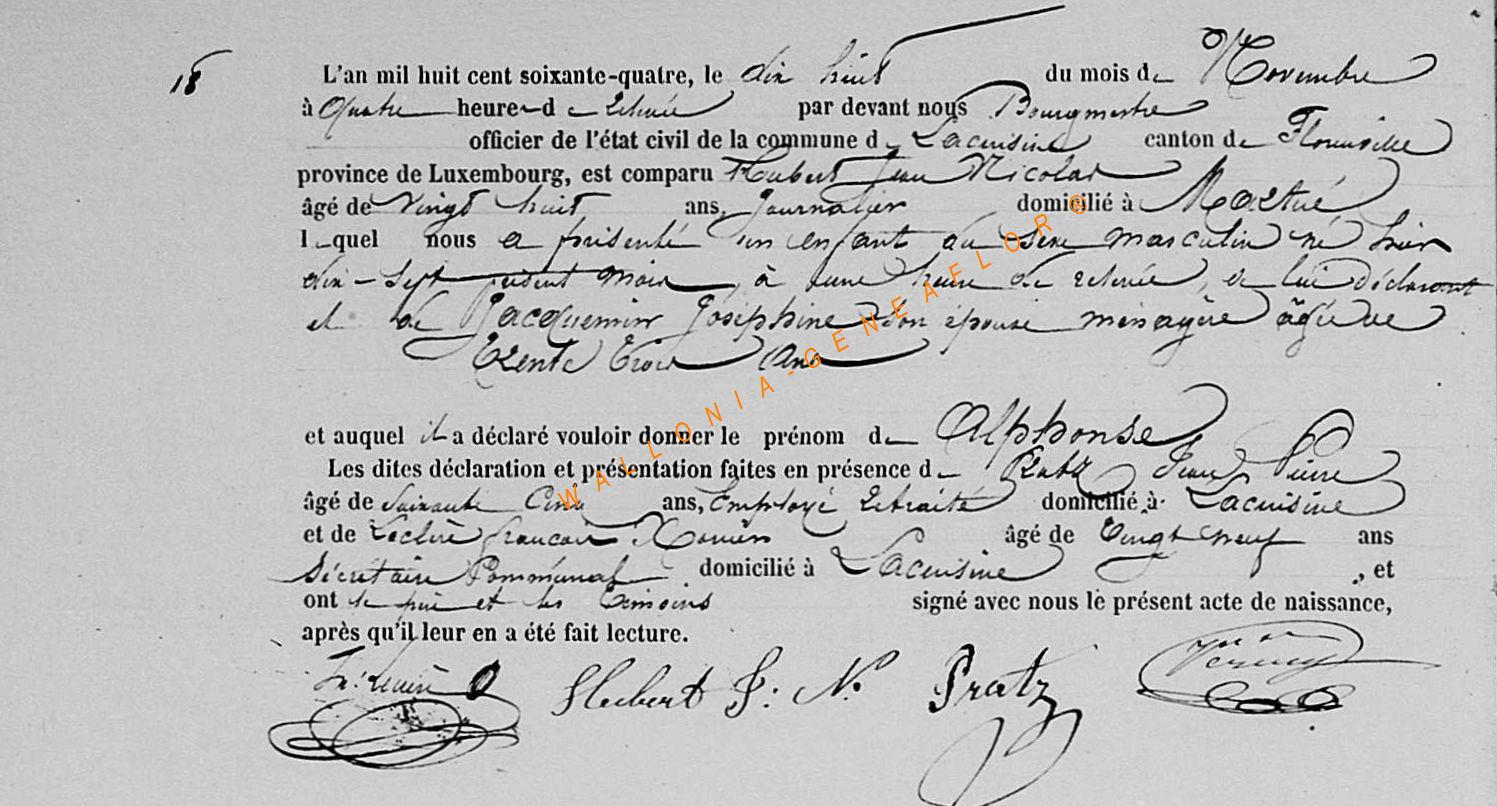 18
L'an mil huit cent soixante-quatre, le dix huit du mois de Novembre
à quatre heures de relevée par devant nous Bourgmestre
officier de l'état civil de la commune de Lacuisine canton de Florenville
province de Luxembourg, est comparu Hubert Jean Nicolas
âgé de vingt huit ans, Journalier domicilié à Martué
lequel nous a présenté un enfant du sexe masculin né hier
dix-sept présent mois, à une heure de relevée, de lui déclarant
et de Jacquemin Joséphine son épouse ménagère âgée de
trente trois ans
et auquel il a déclaré vouloir donner le prénom de Alphonse
Les dites déclaration et présentation faites en présence de Pratz Jean Pierre
âgé de soixante cinq ans, Employé retraité domicilié à Lacuisine
et de François Xavier âgé de vingt neuf ans
Sécretaire Communal domicilié à Lacuisine, et
ont le père et les témoins signé avec nous le présent acte de naissance,
après qu'il leur en a été fait lecture.
Hubert J: N. Pratz
WALLONIA-GENEAFLOR®